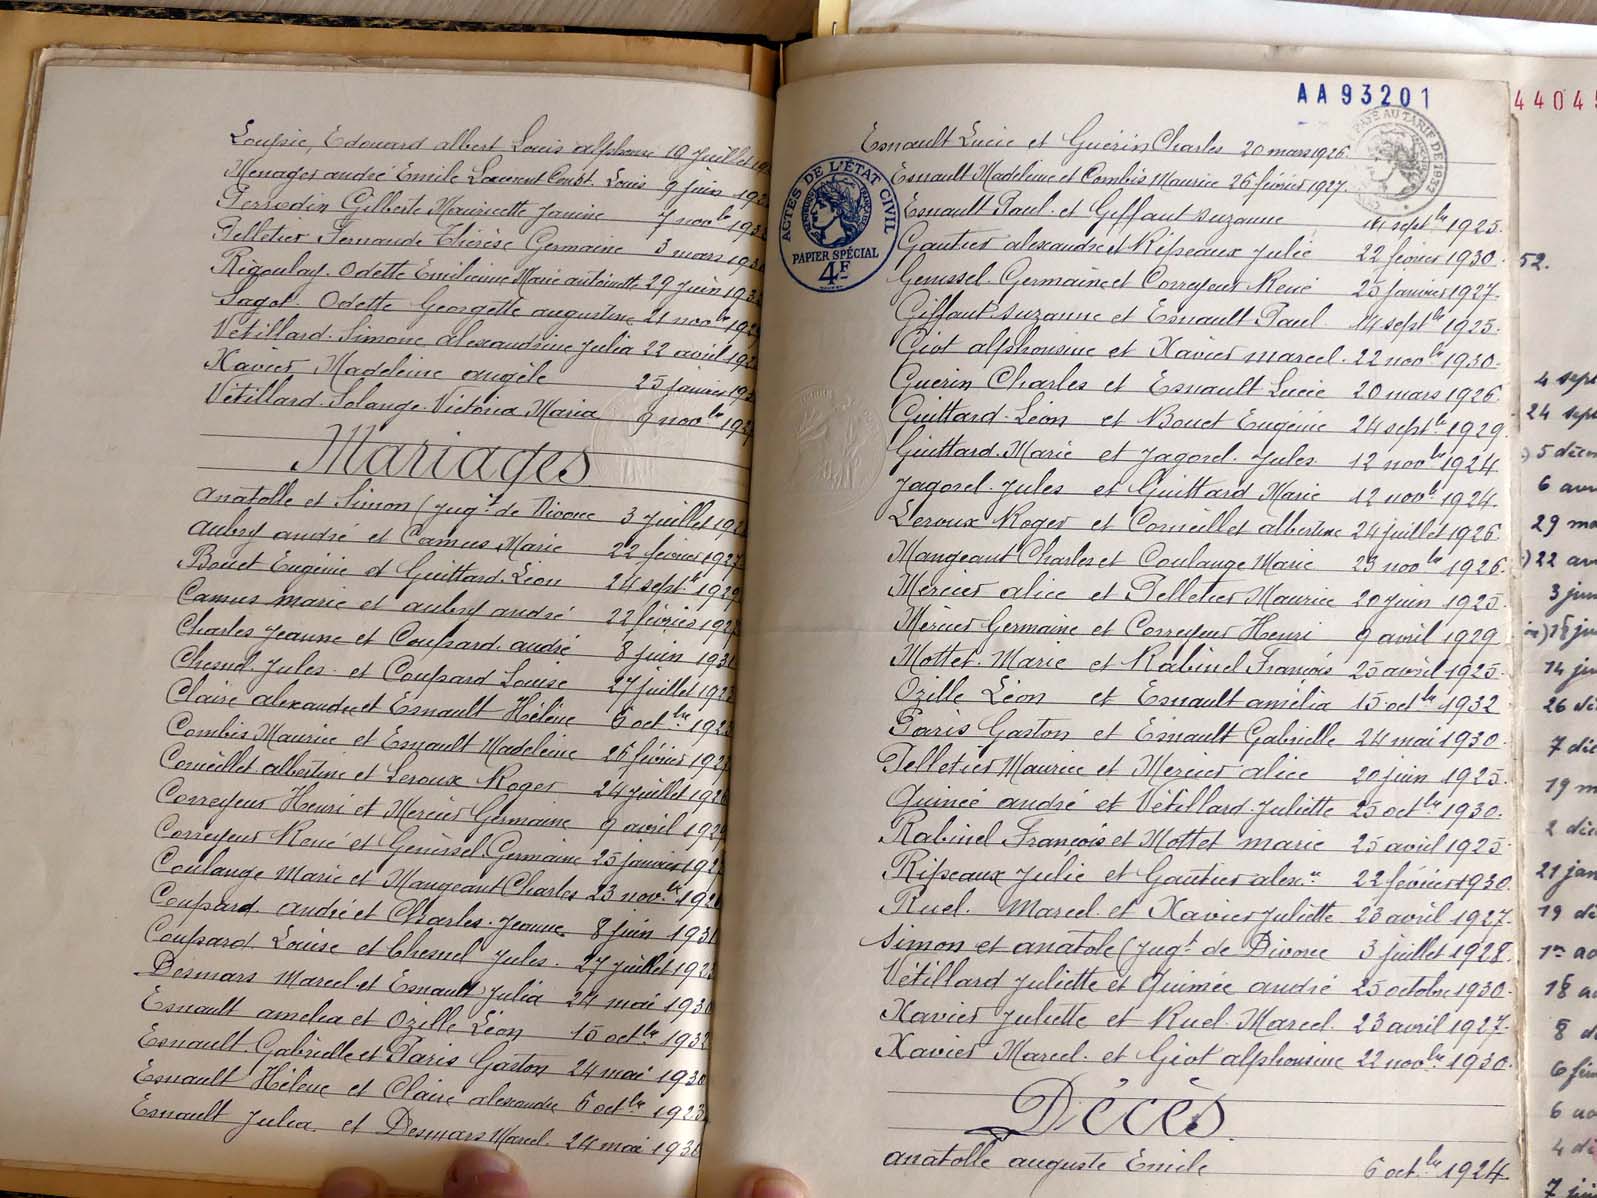 Loupie, Edouard albert Louis alphonse 19 juillet 19
Menager andré Emile Laurent Const. Louis 9 juin 193
Perrodin Gilberte Mauricette Janine 7 nov.bre 193
Pelletier Fernande Thérèse Germaine 3 mars 1930
Rigoulay. Odette Emilienne Marie antoinette 29 juin 193
Sagot. Odette Georgette augustine 21 nov.bre 192
Vétillard. Simone alexandrine Julia 22 avril 192
Xavier Madeleine angèle 25 janvier 19
Vétillard. Solange. Victoria Maria 9 nov.bre 192
Mariages
anatolle et Simon (jug.t de Divorce 3 juillet 192
aubry andré et Camus Marie 22 février 1927
Bouet Eugénie et Guittard. Léon 24 sept.bre 1929
Camus marie et aubry andré 22 février 1927
Charles Jeanne et Coupard. andré 8 juin 1931
Chesnel. Jules. et Coupard Louise 27 juillet 192
Claire alexandre et Esnault Hélène 6 oct.bre 1923
Combis Maurice et Esnault Madeleine 26 février 192
Corneillet albertine et Leroux Roger 24 juillet 192
Correyeur Henri et Mercier Germaine 9 avril 1929
Correyeur René et Genissel. Germaine 25 janvier 192
Coulange Marie et Mangeant Charles 23 nov.bre 192
Coupard. andré et Charles. Jeanne 8 juin 1931
Coupard. Louise et Chesnel Jules. 27 juillet 192
Desmars Marcel et Esnault Julia 24 mai 1930
Esnault amelia et Ozille Léon 15 oct.bre 1932
Esnault. Gabrielle et Paris Gaston 24 mai 1930
Esnault Hélène et Claire alexandre 6 oct.bre 1923
Esnault Julia. et Desmars Marcel. 24 mai 1930
AA93201
PAYÉ AU TARIF DE 1937
ACTES DE L'ÉTAT CIVIL
PAPIER SPÉCIAL
4F
Esnault Lucie et Guérin Charles 20 mars 1926.
Esnault Madeleine et Combis Maurice 26 février 1927.
Esnault Paul. et Giffaut Suzanne 14 sept.bre 1925.
Gautier alexandre et Ripeaux Julie 22 février 1930.
Genissel. Germaine et Correyeur René 25 janvier 1927.
Giffaut Suzanne et Esnault Paul. 14 sept.bre 1925.
Giot alphonsine et Xavier marcel. 22 nov.bre 1930.
Guérin Charles et Esnault. Lucie 20 mars 1926
Guittard. Léon et Bouet Eugénie 24 sept.bre 1929
Guittard. Marie et Jagorel. Jules 12 nov.bre 1924
Jagorel. Jules et Guittard Marie 12 nov.b. 1924.
Leroux Roger et Corneillet albertine 24 juillet 1926.
Mangeant Charles et Coulange Marie 23 nov.bre 1926.
Mercier alice et Pelletier Maurice 20 juin 1925.
Mercier Germaine et Correyeur Henri 9 avril 1929
Mottet. Marie et Rabinel François 25 avril 1925.
Ozille Léon et Esnault amélia 15 oct.bre 1932
Paris Gaston et Esnault Gabrielle 24 mai 1930.
Pelletier Maurice et Mercier alice 20 juin 1925.
Quinée andré et Vétillard. Juliette 25 oct.bre 1930.
Rabinel François et Mottet marie 25 avril 1925
Ripeaux Julie et Gautier alex.re 22 février 1930.
Ruel. Marcel. et Xavier Juliette 23 avril 1927.
Simon et anatole (jug.t de Divorce 3 juillet 1928.
Vétillard Juliette et Quinée andré 25 octobre 1930.
Xavier Juliette et Ruel. Marcel. 23 avril 1927.
Xavier Marcel. et Giot alphonsine 22 nov.bre 1930.
Décès
anatolle auguste Emile 6 oct.bre 1924
44045
52.
4 sept
24 sept
) 5 décem
6 avr
29 ma
) 22 av
3 jui
) 18 ju
14 ju
26 dé
7 déc
19 m
2 déc
21 jan
19 dé
1er ao
18 a
8 d
6 fév
6 ao
4 dé
7 jui